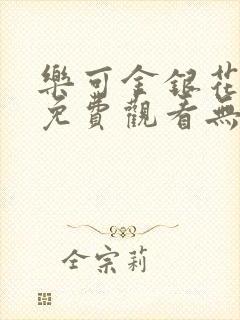 樂可金銀花
免費觀看無
全宗莉